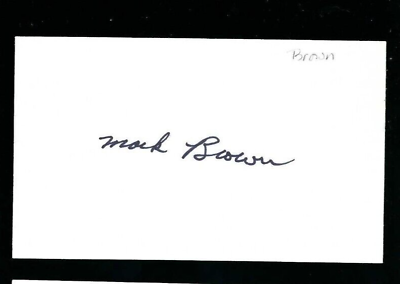 Brown
Mark Brown